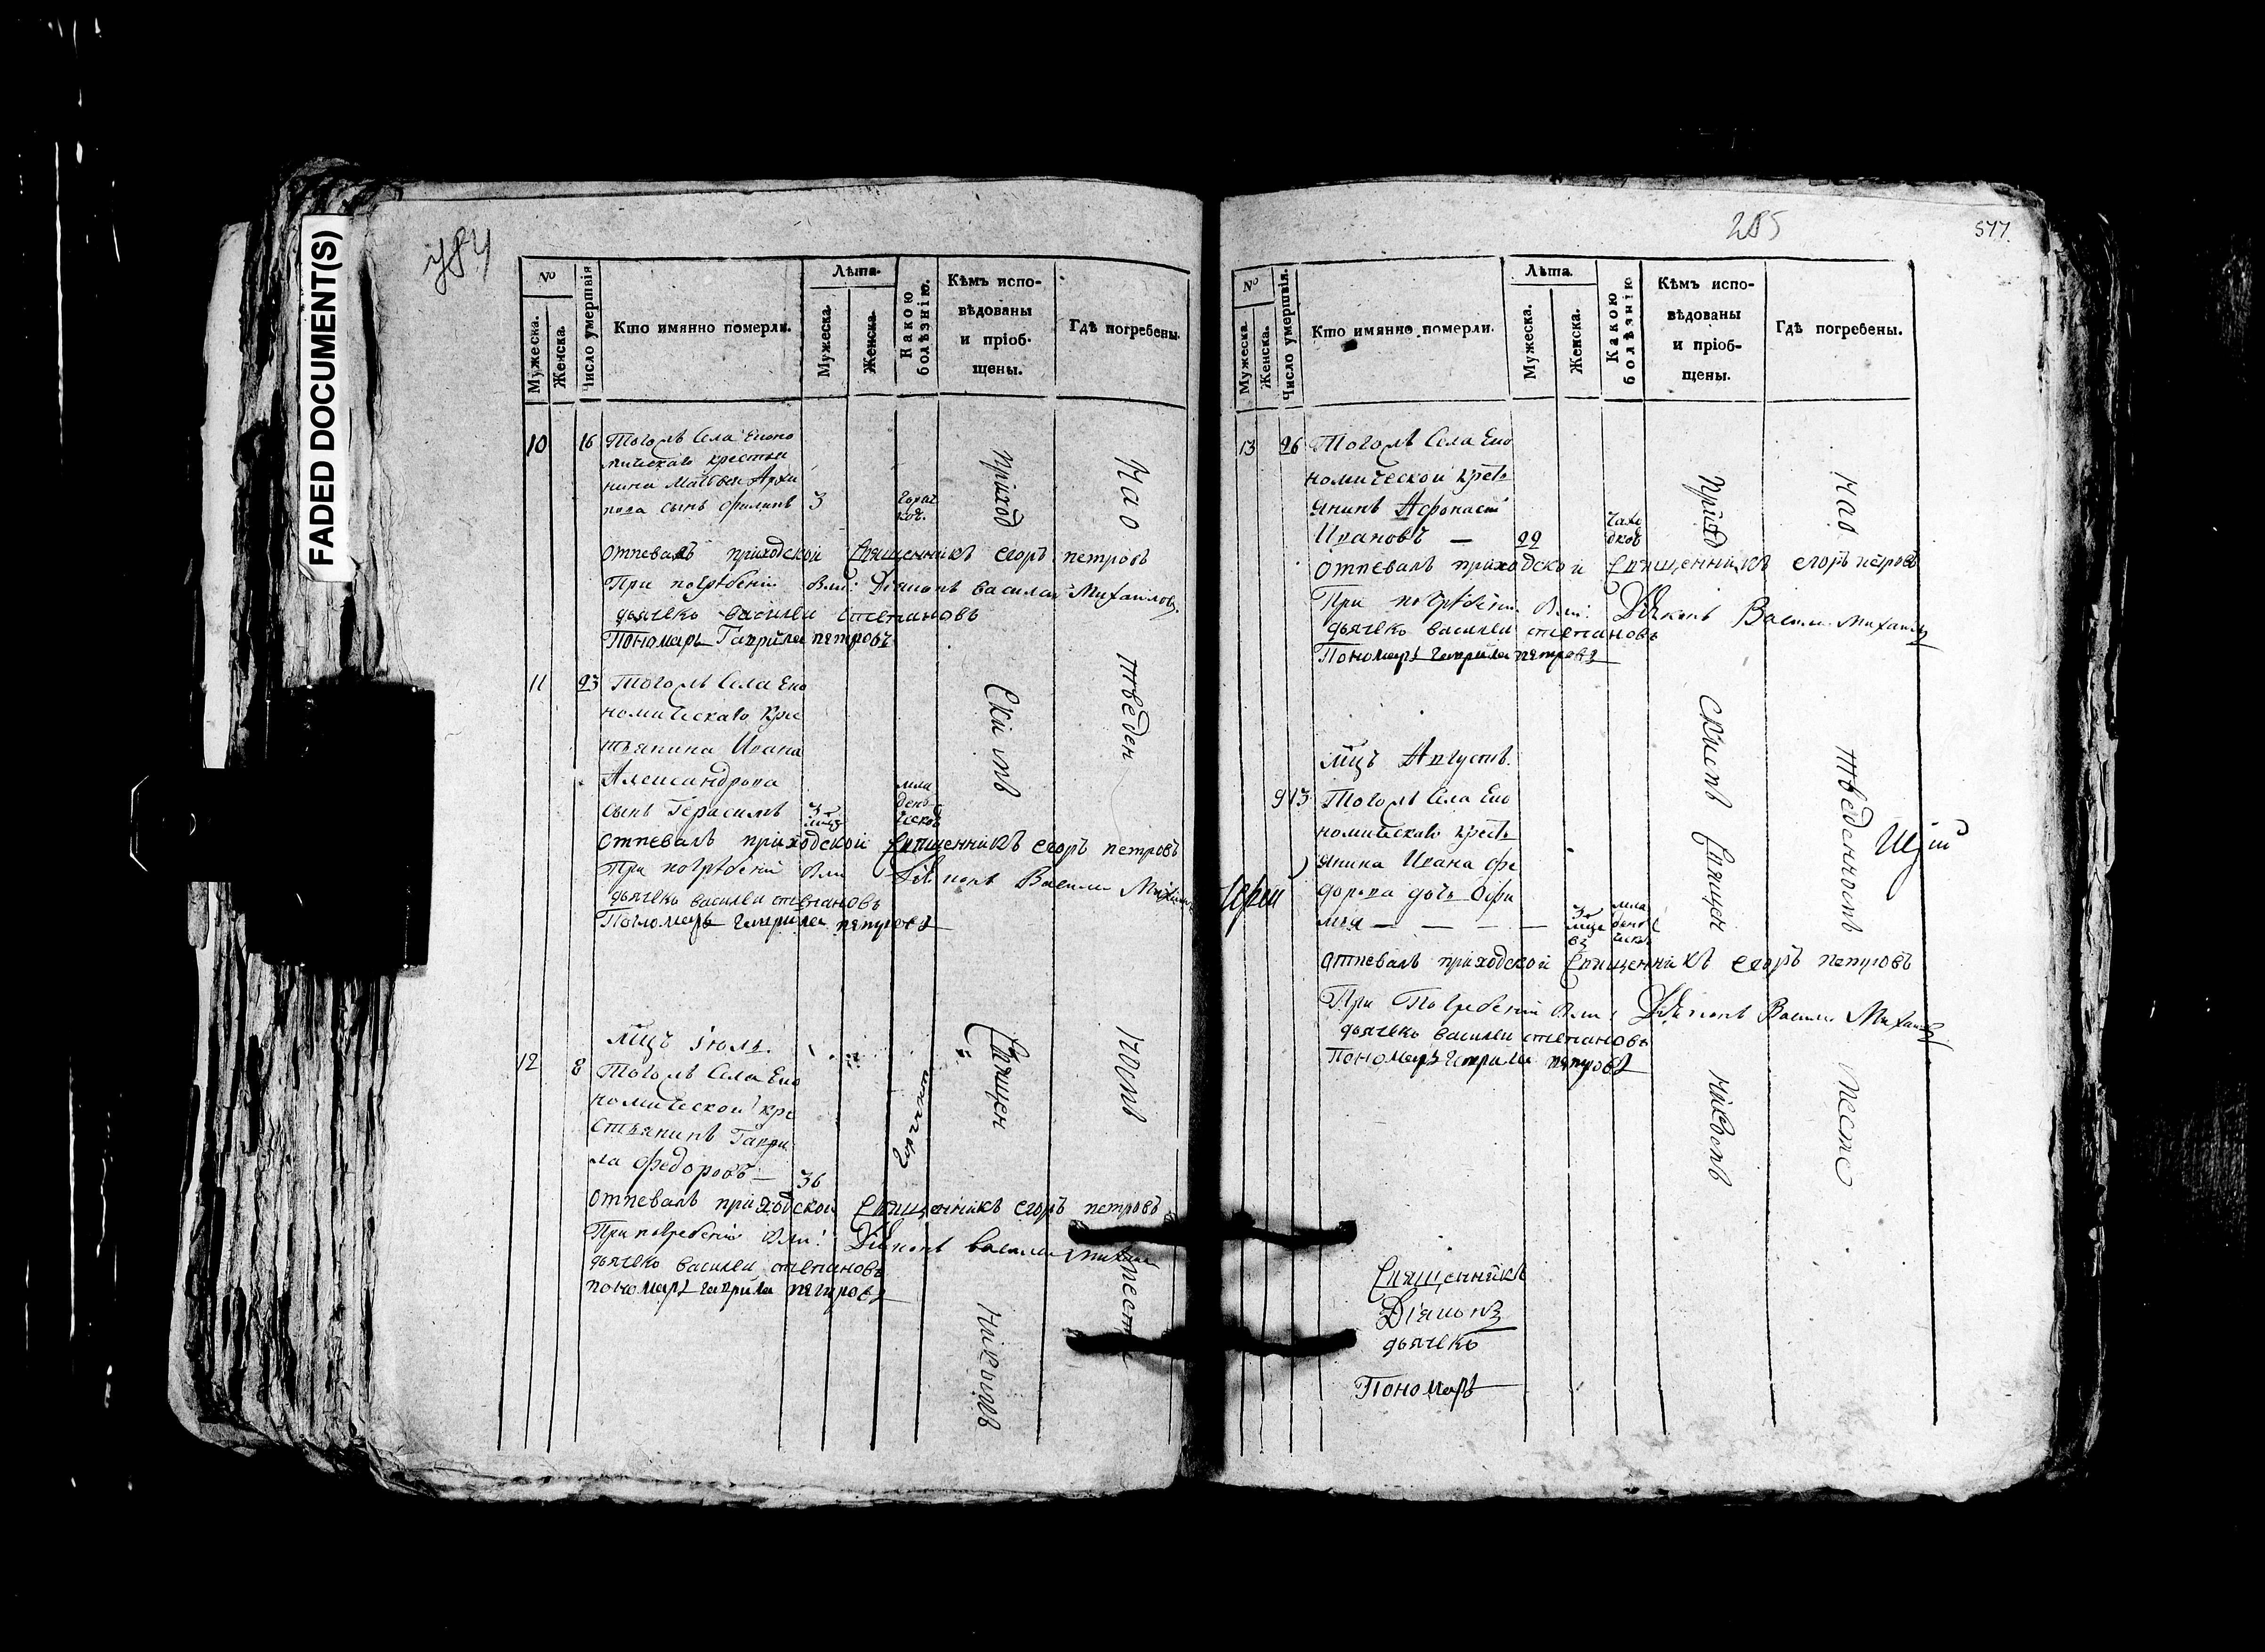 FADED DOCUMENT(S)
784
№
Мужеска.
Женска.
Число умершвія
Кто имянно померли.
Лѣта.
Мужеска.
Женска.
Какою болѣзнію.
Кѣмъ испо-
вѣдованы
и пріоб-
щены.
Гдѣ погребены.
10 16 Тогожъ Села Еконо
мическаго крестья
нина Матвея Архи
пова сынъ Филипъ 3
Отпевалъ приходской Священникъ егоръ петровъ
При погребеніи были: Діяконъ василеи Михаиловъ
дьячекъ василеи степановъ
Пономарь Гаврила петровъ
11 23 Тогожъ Села Еко
номическаго Кре
стьянина Ивана
Александрова
сынъ Герасимъ 3 мцъ мла
ден
ческой
Отпевалъ приходской Священникъ егоръ петровъ
При погребеніи были Діяконъ Василеи Михаиловъ
дьячекъ василеи степановъ
Пономарь гаврила петровъ
мцъ іюль.
12 8 Тогожъ Села Еко
номической кре
стьянинъ Гаври
ла Федоровъ — 36
Отпевалъ приходской Священникъ егоръ петровъ
При погребеніи были: Діяконъ василеи Михаил
дьячекъ василеи степановъ
пономарь гаврила петровъ
приход
ски мъ
Священ
никомъ
На о
тведен
номъ
месте
285
577.
№
Мужеска.
Женска.
Число умершвія.
Кто имянно померли.
Лѣта.
Мужеска.
Женска.
Какою болѣзнію
Кѣмъ испо-
вѣдованы
и пріоб-
щены.
Гдѣ погребены.
13 26 Тогожъ Села Еко
номической крест
янинъ Афонасеи
Ивановъ — 22
Отпевалъ приходской Священникъ егоръ петровъ
При погребеніи были: Діяконъ Василеи Михаилъ
дьячекъ василеи степановъ
Пономарь гаврила петровъ
мцъ Августъ.
9 13 Тогожъ Села Еко
номическаго крест
янина Ивана Фе
дорова дочь Офи
мия — — — — 3 мце
въ мла
ден
ческ
Отпевалъ приходской Священникъ егоръ петровъ
При Погребеніи были: Діяконъ Василеи Михаилъ
дьячекъ василеи степановъ
Пономарь гаврила петровъ
Приход
скимъ
Священ
никомъ
На о
тведенномъ
месте
Священникъ
Діяконъ
дьячекъ
Пономарь